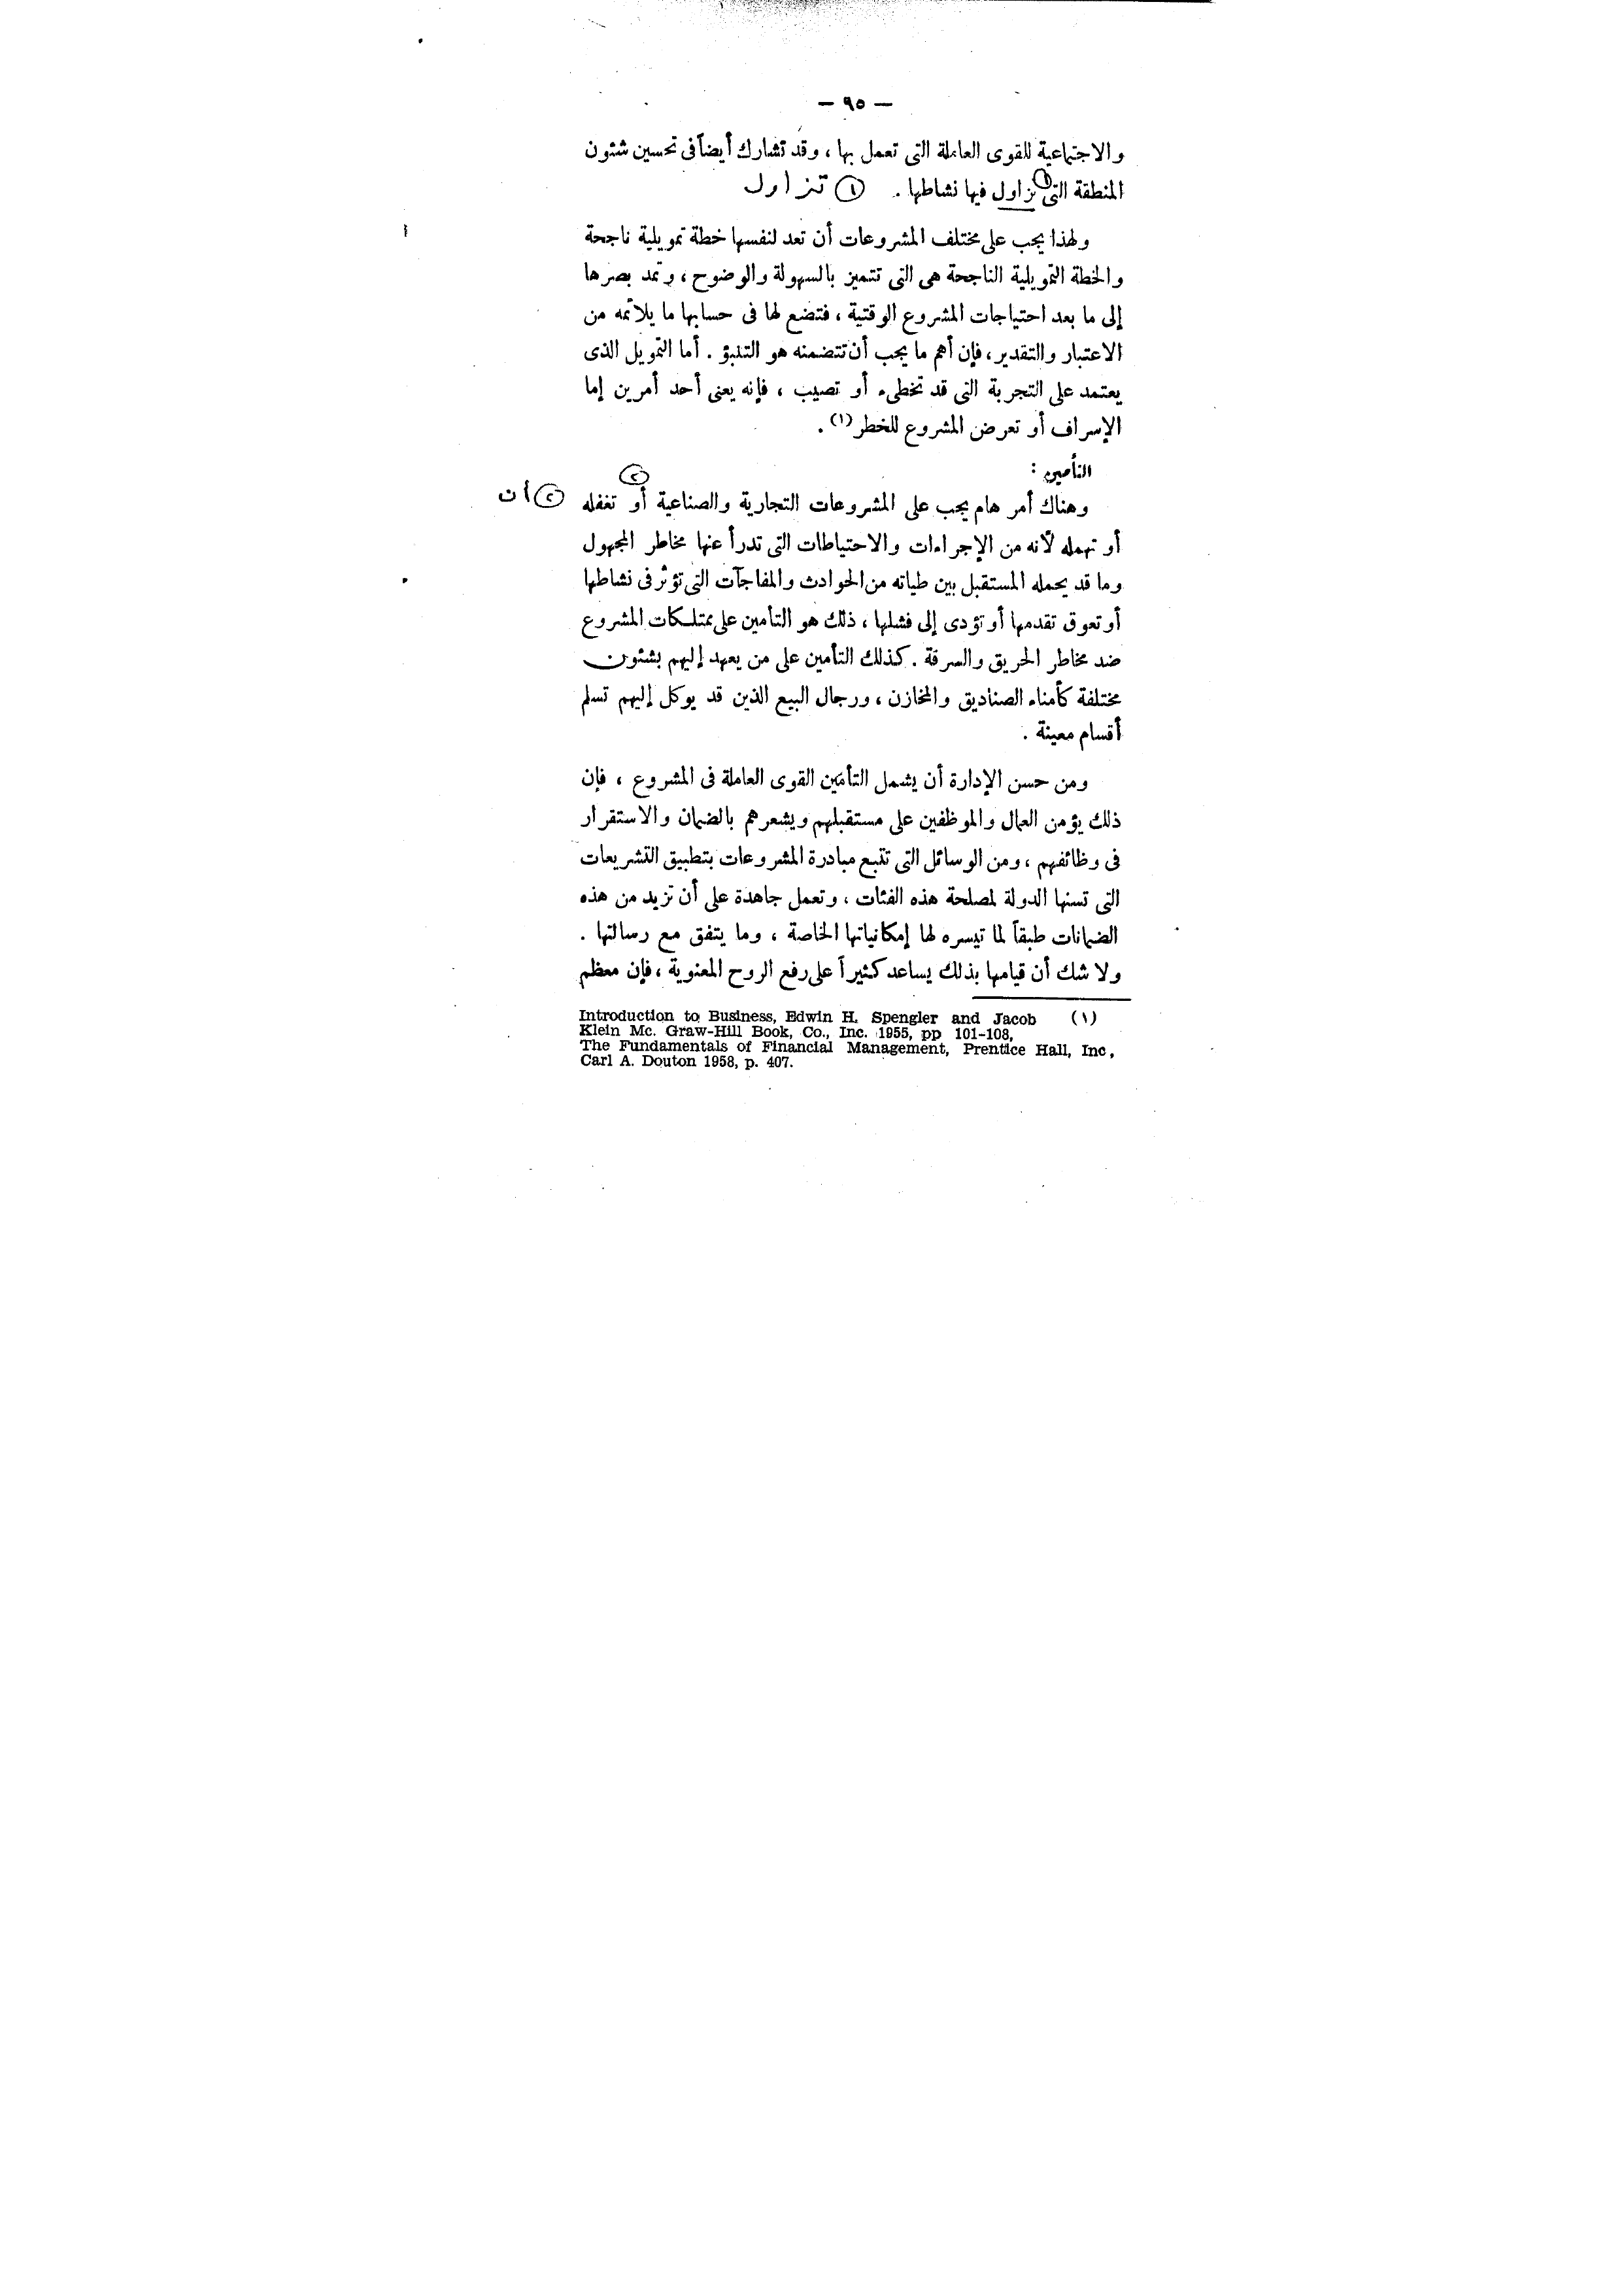 — ٩٥ —
والاجتماعية للقوى العاملة التى تعمل بها ، وقد تشارك أيضاً فى تحسين شئون
المنطقة التى ① تزاول فيها نشاطها . ① تزاول
ولهذا يجب على مختلف المشروعات أن تعد لنفسها خطة تمويلية ناجحة
والخطة التمويلية الناجحة هى التى تتميز بالسهولة والوضوح ، وتمد بصرها
إلى ما بعد احتياجات المشروع الوقتية ، فتضع لها فى حسابها ما يلائمه من
الاعتبار والتقدير ، فإن أهم ما يجب أن تتضمنه هو التنبؤ . أما التمويل الذى
يعتمد على التجربة التى قد تخطىء أو تصيب ، فإنه يعنى أحد أمرين إما
الإسراف أو تعرض المشروع للخطر (١) .
التأمين :
وهناك أمر هام يجب على المشروعات التجارية والصناعية أو ② تغفله ② أن
أو تهمله لأنه من الإجراءات والاحتياطات التى تدرأ عنها مخاطر المجهول
وما قد يحمله المستقبل بين طياته من الحوادث والمفاجآت التى تؤثر فى نشاطها
أو تعوق تقدمها أو تؤدى إلى فشلها ، ذلك هو التأمين على ممتلكات المشروع
ضد مخاطر الحريق والسرقة . كذلك التأمين على من يعهد إليهم بشئون
مختلفة كأمناء الصناديق والمخازن ، ورجال البيع الذين قد يوكل إليهم تسلم
أقسام معينة .
ومن حسن الإدارة أن يشمل التأمين القوى العاملة فى المشروع ، فإن
ذلك يؤمن العمال والموظفين على مستقبلهم ويشعرهم بالضمان والاستقرار
فى وظائفهم ، ومن الوسائل التى تتبع مبادرة المشروعات بتطبيق التشريعات
التى تسنها الدولة لمصلحة هذه الفئات ، وتعمل جاهدة على أن تزيد من هذه
الضمانات طبقاً لما تيسره لها إمكانياتها الخاصة ، وما يتفق مع رسالتها .
ولا شك أن قيامها بذلك يساعد كثيراً على رفع الروح المعنوية ، فإن معظم
Introduction to Business, Edwin H. Spengler and Jacob (١)
Klein Mc. Graw-Hill Book, Co., Inc. 1955, pp 101-108,
The Fundamentals of Financial Management, Prentice Hall, Inc,
Carl A. Douton 1958, p. 407.